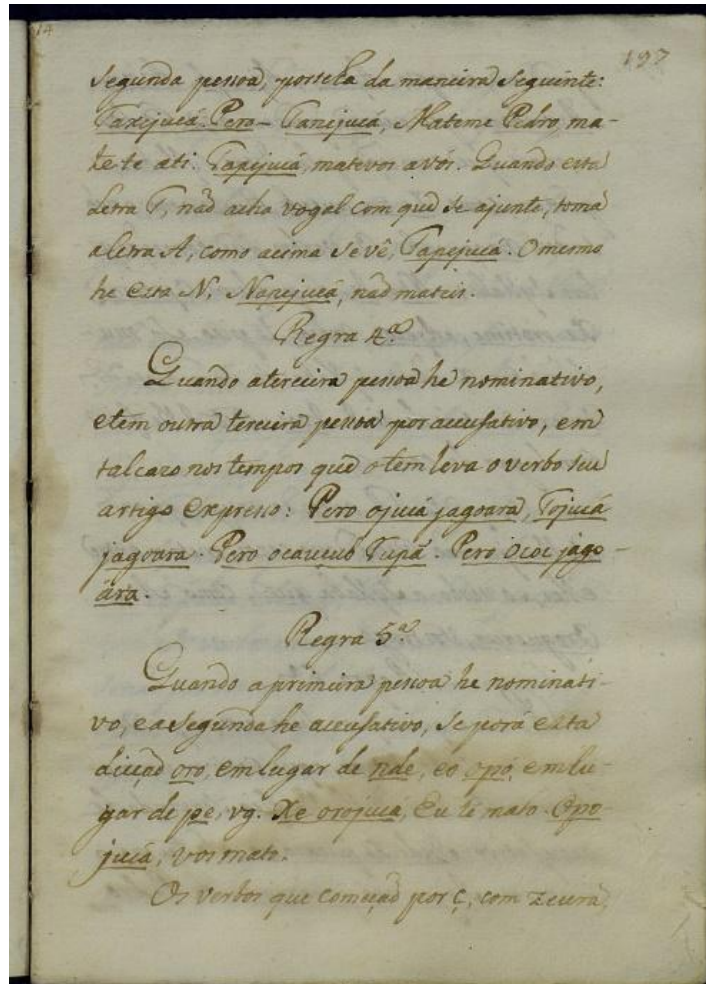 14
197
segunda pessoa, porseha da maneira seguinte:
Taxejucá Pero – Tanejucá, Mateme Pedro, ma-
te-te ati. Tapejucá, matevos a vós. Quando esta
letra T, naõ acha vogal com que se ajunte, toma
a letra A, como acima se vê, Tapejucá. O mesmo
he esta N, Napejucá, naõ mateis.
Regra 4.ª
Quando aterceira pessoa he nominativo,
etem outra terceira pessoa por accusativo, em
tal cazo nos tempos que otem leva o verbo seu
artigo expresso: Pero ojucá jagoara, Tojucá
jagoara. Pero oçauçub Tupã. Pero Ocoe jago-
ára.
Regra 5.ª
Quando a primeira pessoa he nominati-
vo, e a segunda he accusativo, se porá esta
dicçaõ oro, em lugar de nde, eo opó, em lu-
gar de pe, vg. Xe orojucá, Eu te mato. Opo-
jucá, vos mato.
Os verbos que começaõ por ç, com zeura,